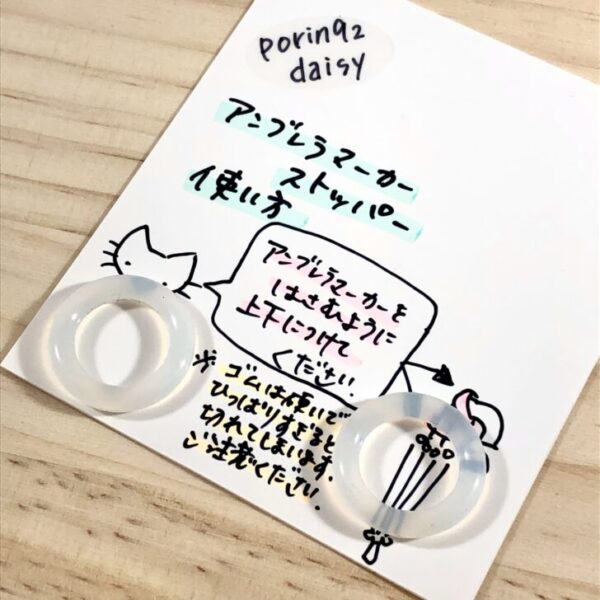 porin92
daisy
アンブレラマーカー
ストッパー
使い方
アンブレラマーカーを
はさむように
上下につけて
ください.
※ ゴムは使いで
ひっぱりすぎると
切れてしまいます.
ご注意ください.